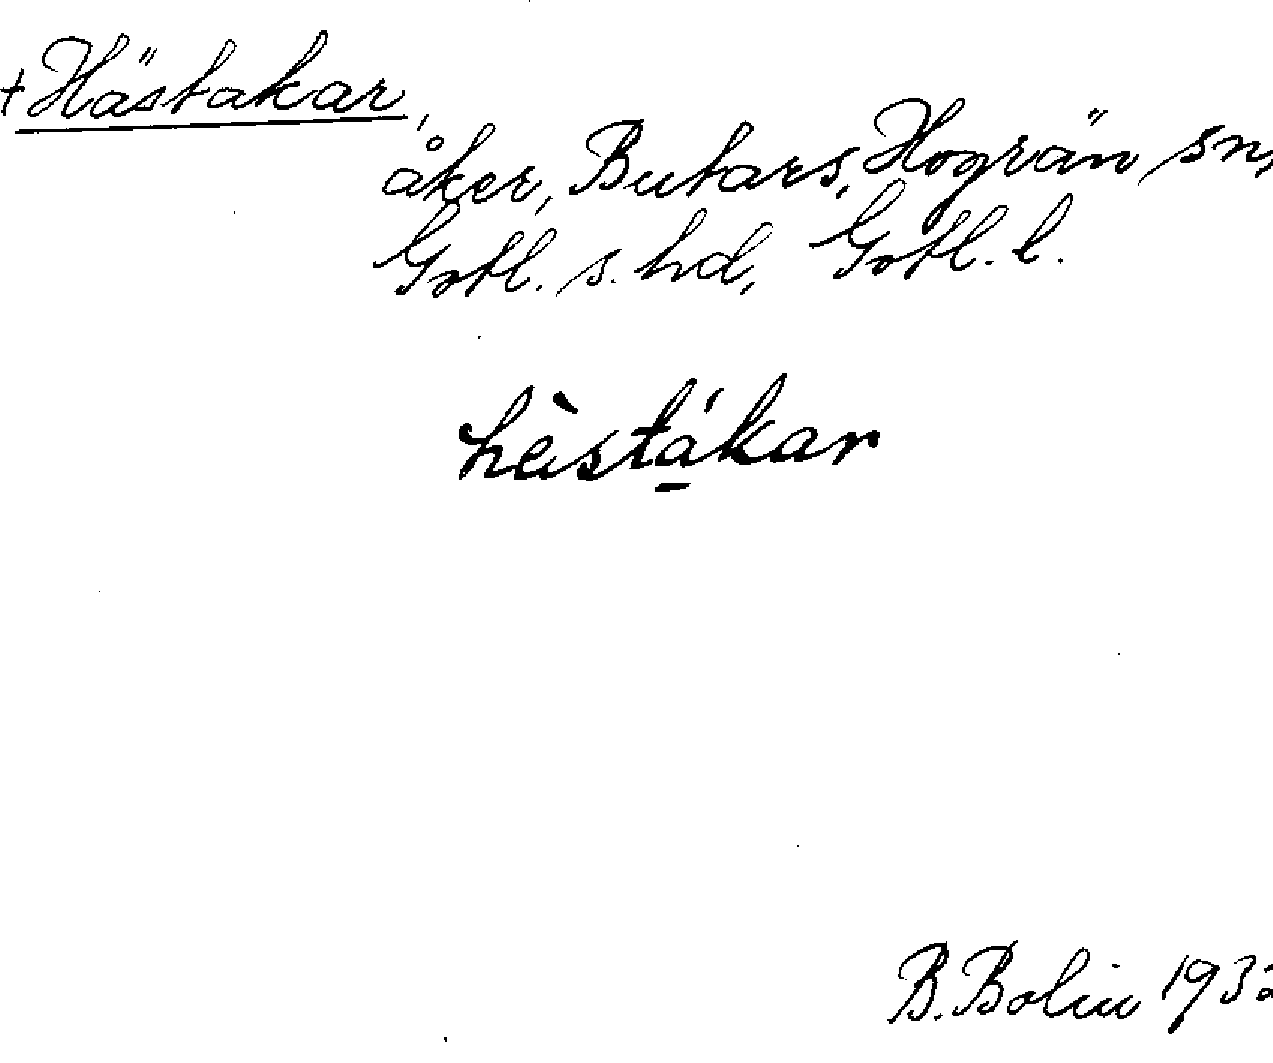 +Hästakar,
åker, Butars, Hogrän sn,
Gotl. s. hd, Gotl. l.
hèstákar
B. Bolin 1932